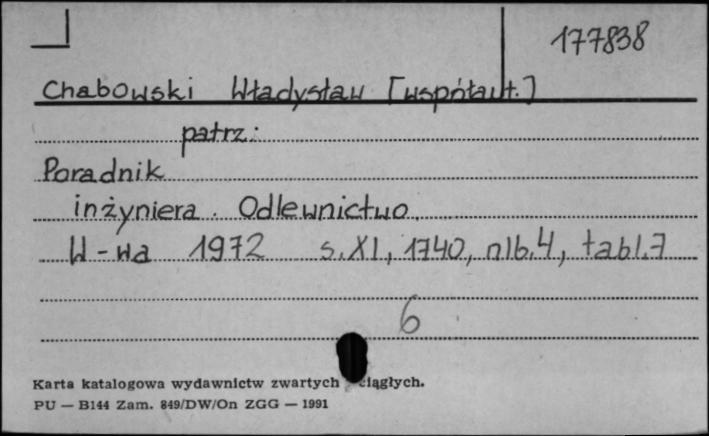 177838
Chabowski Władysław [współaut.]
patrz:
Poradnik
inżyniera. Odlewnictwo.
W-wa 1972 s. XI, 1740, nlb. 4, tabl. 7
6
Karta katalogowa wydawnictw zwartych ciągłych.
PU — B144 Zam. 849/DW/On ZGG — 1991